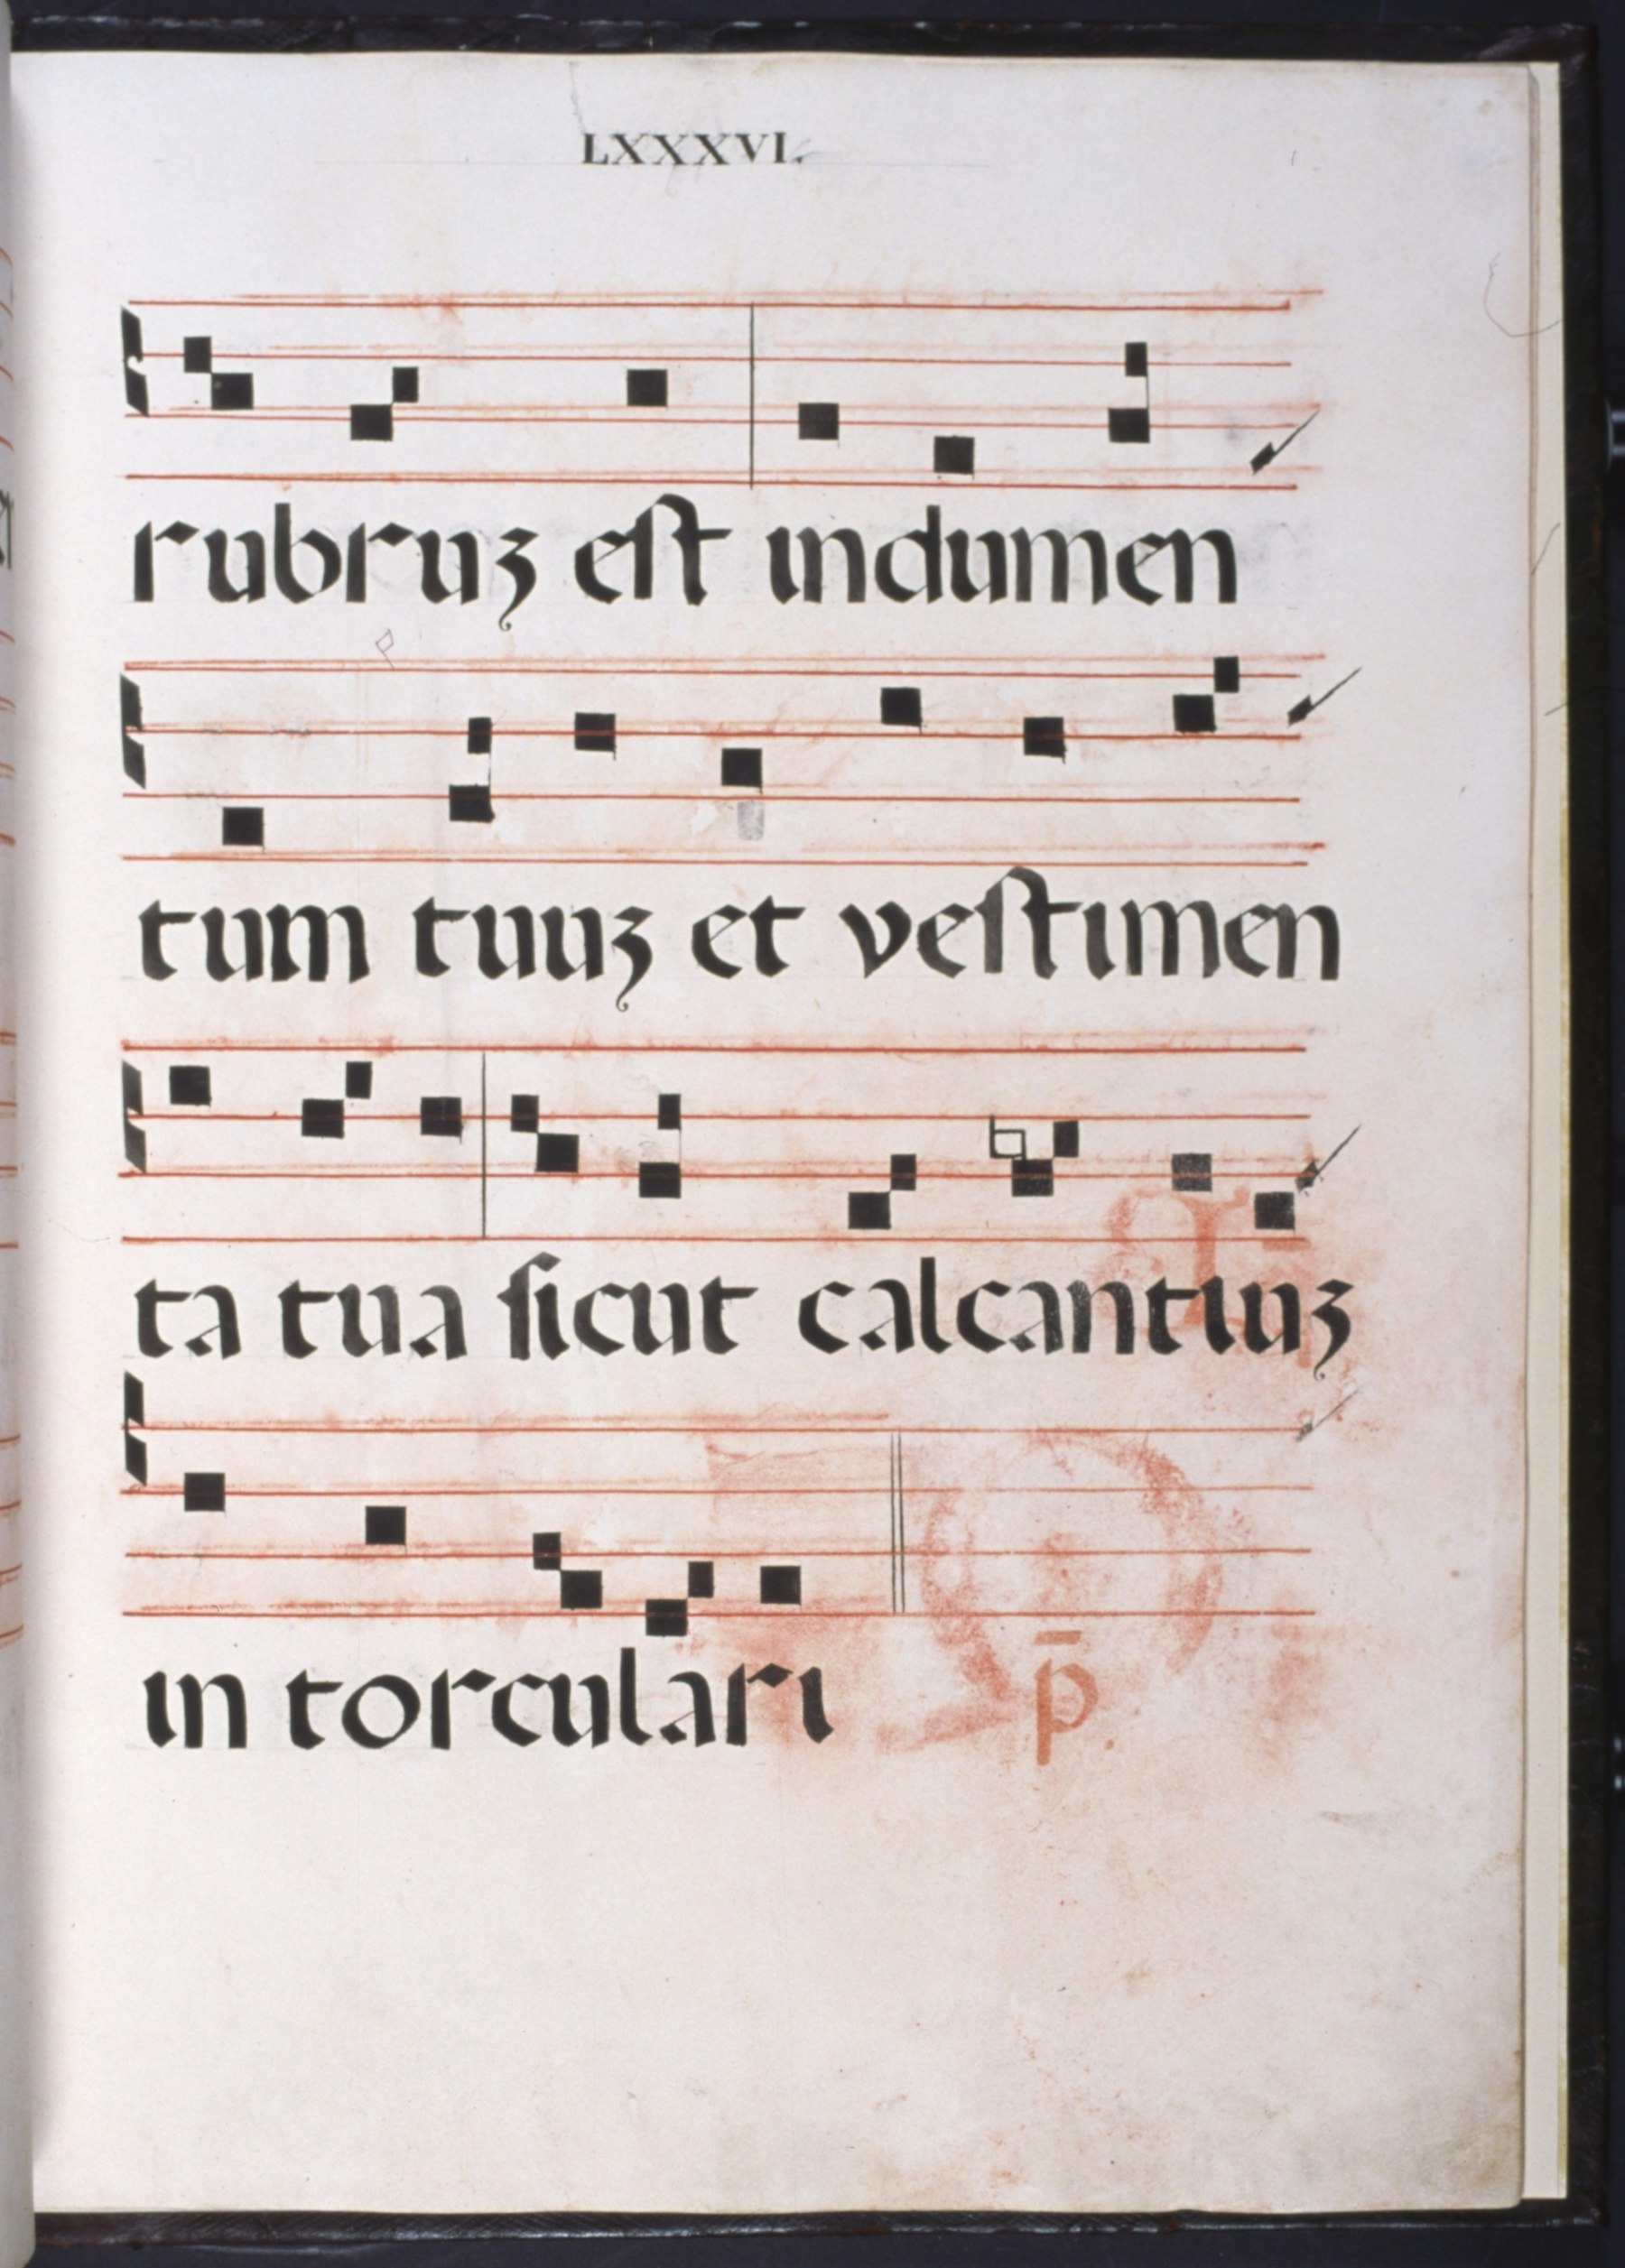 LXXXVI.
rubruꝫ eſt indumen
tum tuuꝫ et veſtimen
ta tua ſicut calcantiuꝫ
in torculari p̄.